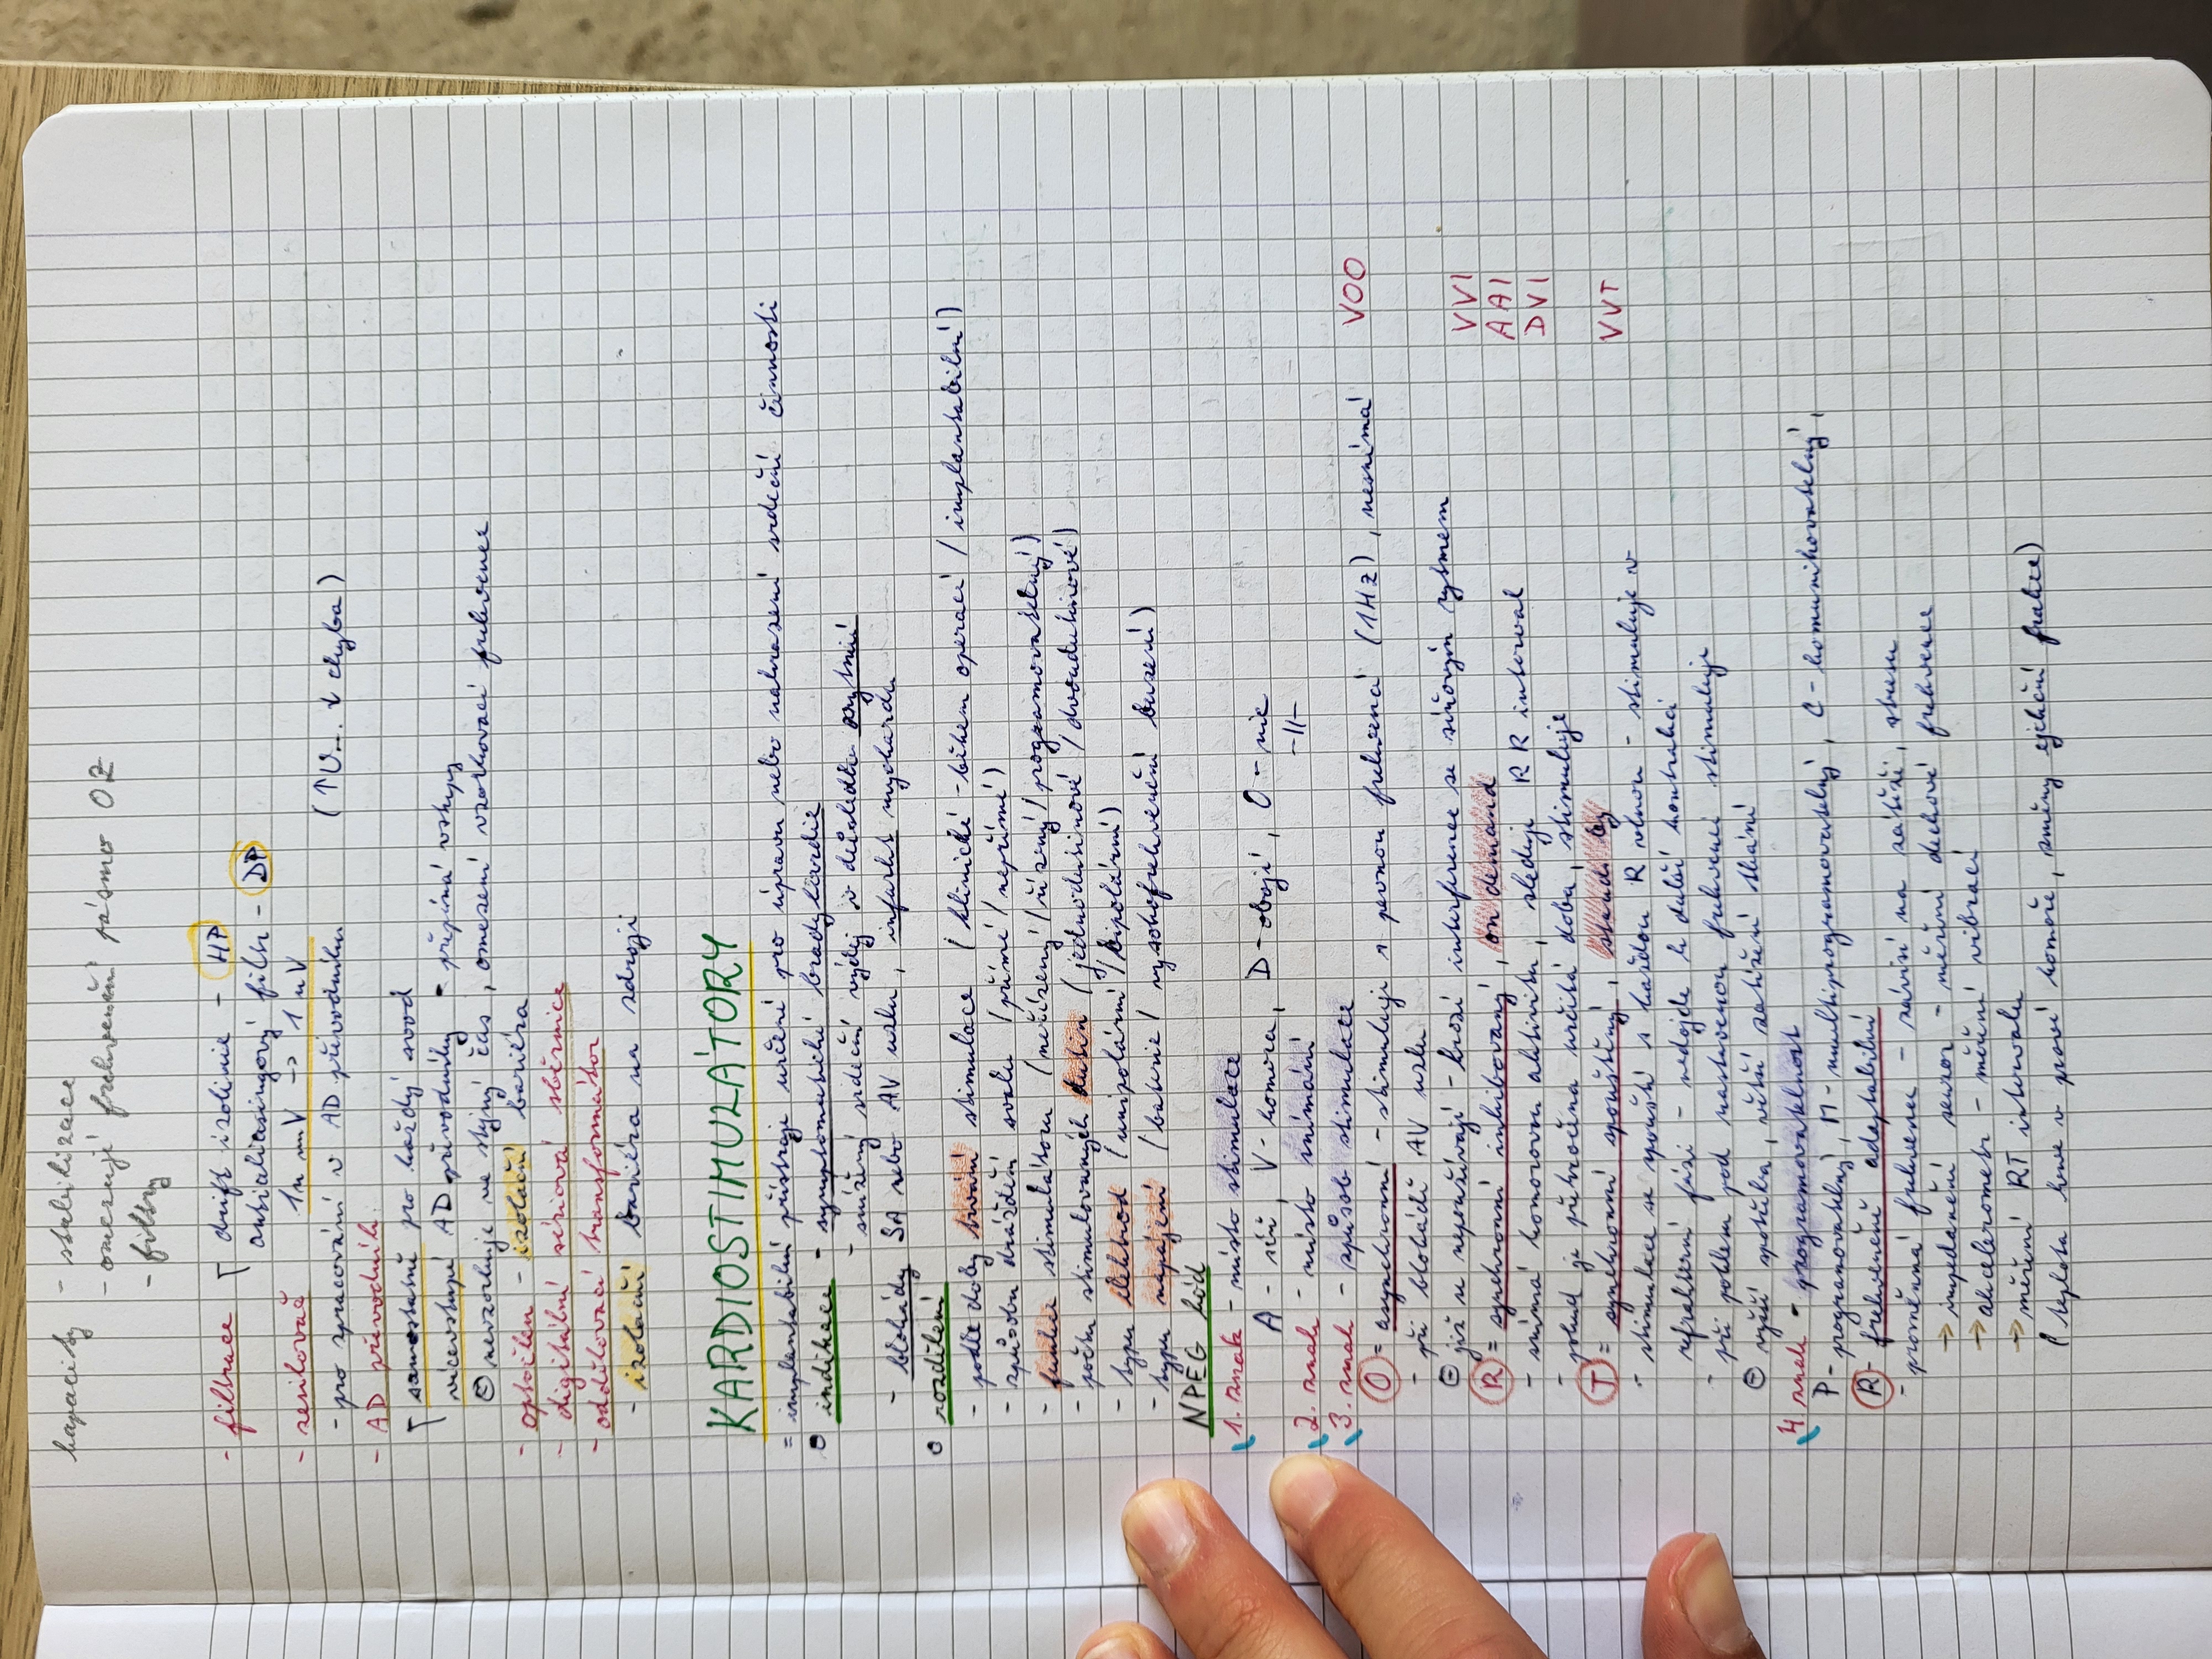 kapacity - stabilizace
- omezují frekvenční pásmo OZ
- filtry
- filtrace drift izolinie - HP
antialiasingový filtr - DP
- zesilovač 1n mV -> 1 nV
- pro zpracování v AD převodníku (↑U... ↓ chyba)
- AD převodník
samostatně pro každý svod
vícevstupé AD převodníky - přepíná vstupy
⊖ nevzorkuje ve stejný čas, omezení vzorkovací frekvence
- optočlen - izolační bariéra
- digitální sériová sběrnice
- oddělovací transformátor
- izolační bariéra na zdroji
KARDIOSTIMULÁTORY
= implantabilní přístroje určené pro úpravu nebo nahrazení srdeční činnosti
indikace - symptomatické bradykardie
- snížený srdeční výdej v důsledku arytmií
- blokády SA nebo AV uzlu, infarkt myokardu
rozdělení
- podle doby trvání stimulace (klinické - během operací / implantabilní)
- způsobu dráždění svalu (přímé / nepřímé)
- funkce stimulátoru (neřízený / řízený / programovatelný)
- počtu stimulovaných dutin (jednodutinové / dvoudutinové)
- typu elektrod (unipolární / bipolární)
- typu napájení (baterie / vysokofrekvenční buzení)
NPEG kód
1. znak - místo stimulace
A - síň, V - komora, D - obojí, O - nic
2. znak - místo snímání -||-
3. znak - způsob stimulace
O = asynchronní - stimuluje s pevnou frekvencí (1Hz), nesnímá VOO
- při blokádě AV uzlu
⊖ již se nepoužívají - hrozí interference se síňovým rytmem
R = synchronní inhibovaný, on demand VVI
- snímá komorovou aktivitu, sleduje RR interval AAI
- pokud je překročena určitá doba, stimuluje DVI
T = synchronní spouštěný, stand by VVT
- stimulace se spouští s každou R vlnou - stimuluje v
refrakterní fázi - nedojde k další kontrakci
- při poklesu pod nastavenou frekvenci stimuluje
⊖ vyšší spotřeba, větší zatížení tkání
4. znak - programovatelnost
P - programovatelný, M - multiprogramovatelný, C - komunikovatelný,
R - frekvenčně adaptabilní
- proměnná frekvence - závisí na zátěži, stresu
-> impedanční senzor - měření dechové frekvence
-> akcelerometr - měření vibrací
-> měření RT intervalu
(teplota krve v pravé komoře, změny ejekční frakce)